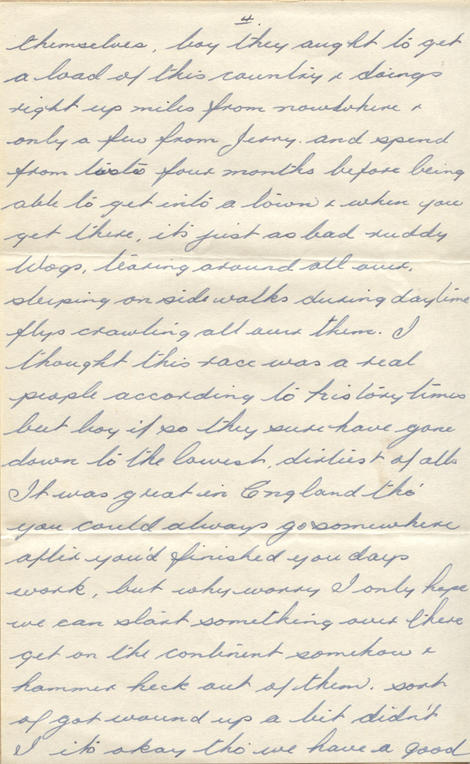 4.
themselves, boy they aught to get
a load of this country & doings
right up miles from nowhere &
only a few from Jerry. and spend
from two to four months before being
able to get into a town & when you
get there, it's just as bad ruddy
Wogs, tearing around all over,
sleeping on sidewalks during daytime
flys crawling all over them. I
thought this race was a real
people according to history times
but boy if so they sure have gone
down to the lowest, dirtiest of alls
It was great in England tho'
you could always go somewhere
after you'd finished you days
work, but why worry I only hope
we can start something over there
get on the continent somehow &
hammer heck out of them. sort
of got wound up a bit didn't
I it's okay tho we have a good